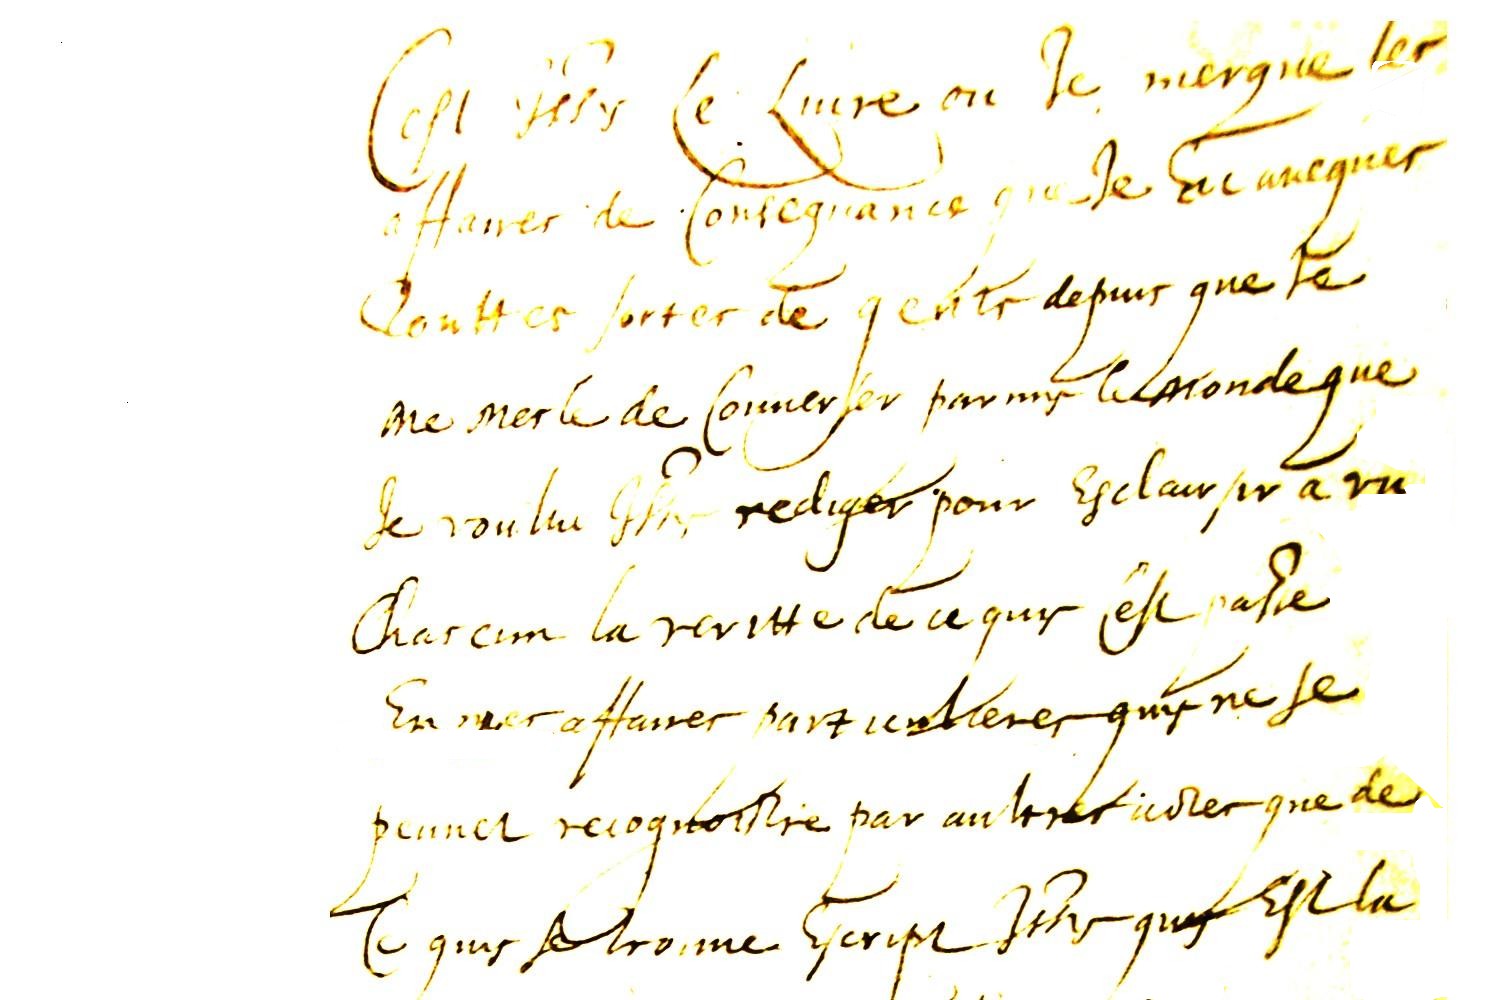 Cest Issy Le Livre ou Je merque les
affaires de Consequance que Je Eu avecques
Touttes sortes de gents depuis que Je
me mesle de Converser parmy le monde que
Je voulLu Issy rediger pour Esclairsir a un
Chascun la veritte de ce quy C'est passe
En mes affaires particulieres quy ne se
peuvet recognoistre par aultres que de
Ce quy se trouve Escript Issy quy Est la